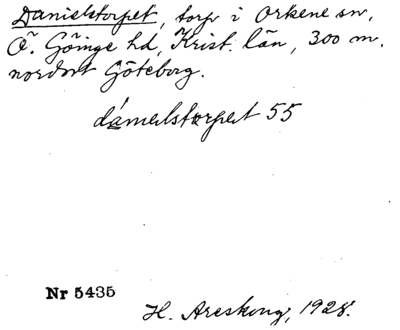 Danielstorpet, torp i Örkene sn,
Ö. Göinge hd, Krist. län, 300 m.
nordost Göteborg.
dánıelstorpet 55
Nr 5435
H. Areskoug, 1928.